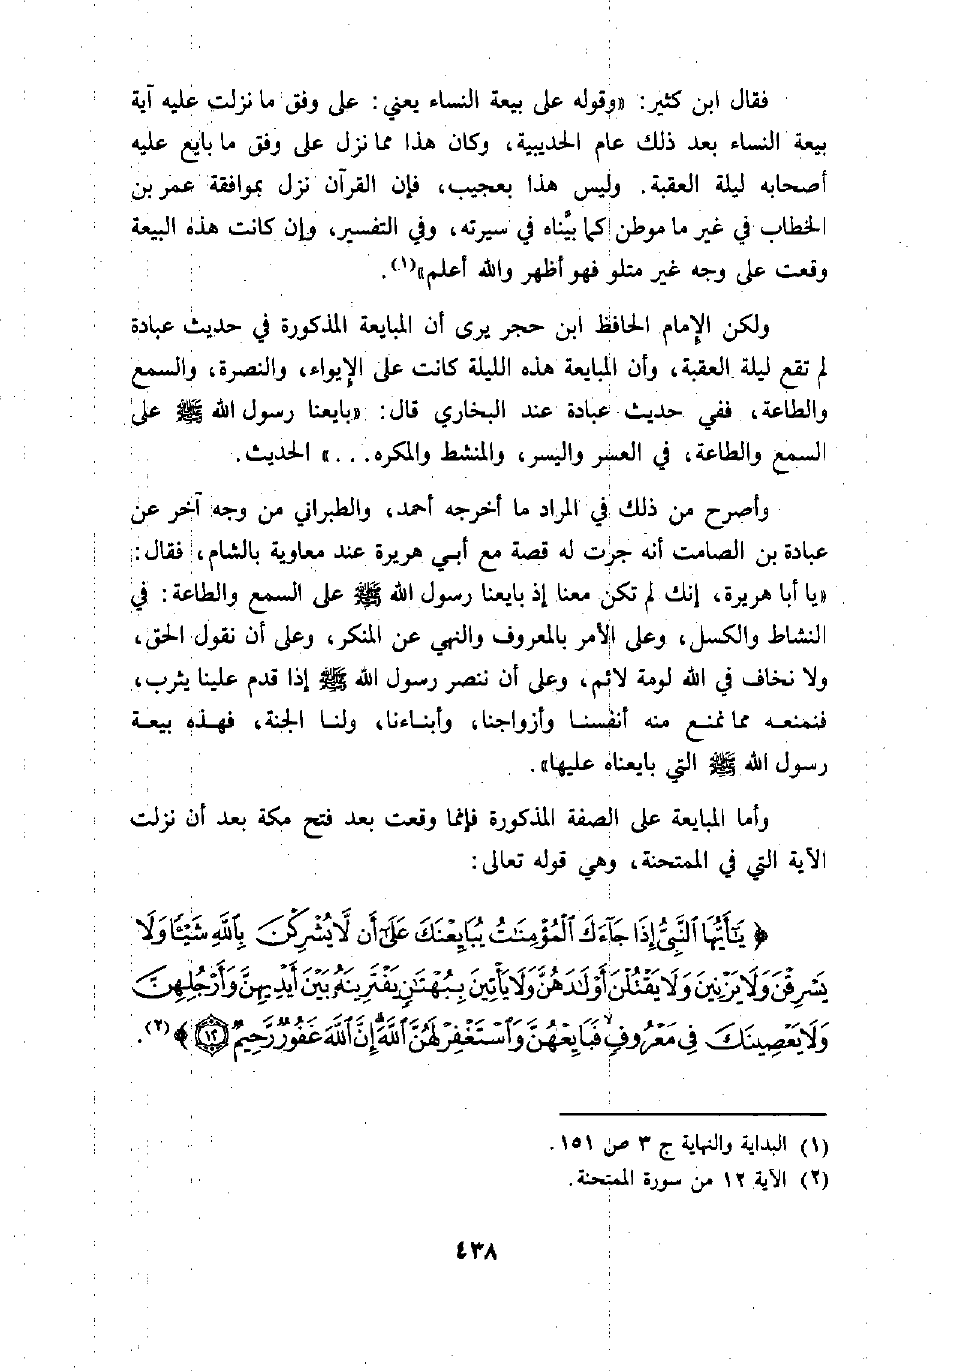 فقال ابن كثير: «وقوله على بيعة النساء يعني: على وفق ما نزلت عليه آية
بيعة النساء بعد ذلك عام الحديبية، وكان هذا مما نزل على وفق ما بايع عليه
أصحابه ليلة العقبة. وليس هذا بعجيب، فإن القرآن نزل بموافقة عمر بن
الخطاب في غير ما موطن كما بيَّناه في سيرته، وفي التفسير، وإن كانت هذه البيعة
وقعت على وجه غير متلو فهو أظهر والله أعلم»(١).
ولكن الإمام الحافظ ابن حجر يرى أن المبايعة المذكورة في حديث عبادة
لم تقع ليلة العقبة، وأن المبايعة هذه الليلة كانت على الإيواء، والنصرة، والسمع
والطاعة، ففي حديث عبادة عند البخاري قال: «بايعنا رسول الله ﷺ على
السمع والطاعة، في العسر واليسر، والمنشط والمكره...» الحديث.
وأصرح من ذلك في المراد ما أخرجه أحمد، والطبراني من وجه آخر عن
عبادة بن الصامت أنه جرت له قصة مع أبي هريرة عند معاوية بالشام، فقال:
«يا أبا هريرة، إنك لم تكن معنا إذ بايعنا رسول الله ﷺ على السمع والطاعة: في
النشاط والكسل، وعلى الأمر بالمعروف والنهي عن المنكر، وعلى أن نقول الحق،
ولا نخاف في الله لومة لائم، وعلى أن ننصر رسول الله ﷺ إذا قدم علينا يثرب،
فنمنعه مما نمنع منه أنفسنا وأزواجنا، وأبناءنا، ولنا الجنة، فهذه بيعة
رسول الله ﷺ التي بايعناه عليها».
وأما المبايعة على الصفة المذكورة فإنما وقعت بعد فتح مكة بعد أن نزلت
الآية التي في الممتحنة، وهي قوله تعالى:
﴿ يَٰٓأَيُّهَا ٱلنَّبِىُّ إِذَا جَآءَكَ ٱلْمُؤْمِنَٰتُ يُبَايِعْنَكَ عَلَىٰٓ أَن لَّا يُشْرِكْنَ بِٱللَّهِ شَيْـًٔا وَلَا
يَسْرِقْنَ وَلَا يَزْنِينَ وَلَا يَقْتُلْنَ أَوْلَٰدَهُنَّ وَلَا يَأْتِينَ بِبُهْتَٰنٍ يَفْتَرِينَهُۥ بَيْنَ أَيْدِيهِنَّ وَأَرْجُلِهِنَّ
وَلَا يَعْصِينَكَ فِى مَعْرُوفٍ ۙ فَبَايِعْهُنَّ وَٱسْتَغْفِرْ لَهُنَّ ٱللَّهَ ۖ إِنَّ ٱللَّهَ غَفُورٌ رَّحِيمٌ ١٢ ﴾(٢).
(١) البداية والنهاية ج ٣ ص ١٥١.
(٢) الآية ١٢ من سورة الممتحنة.
٤٣٨